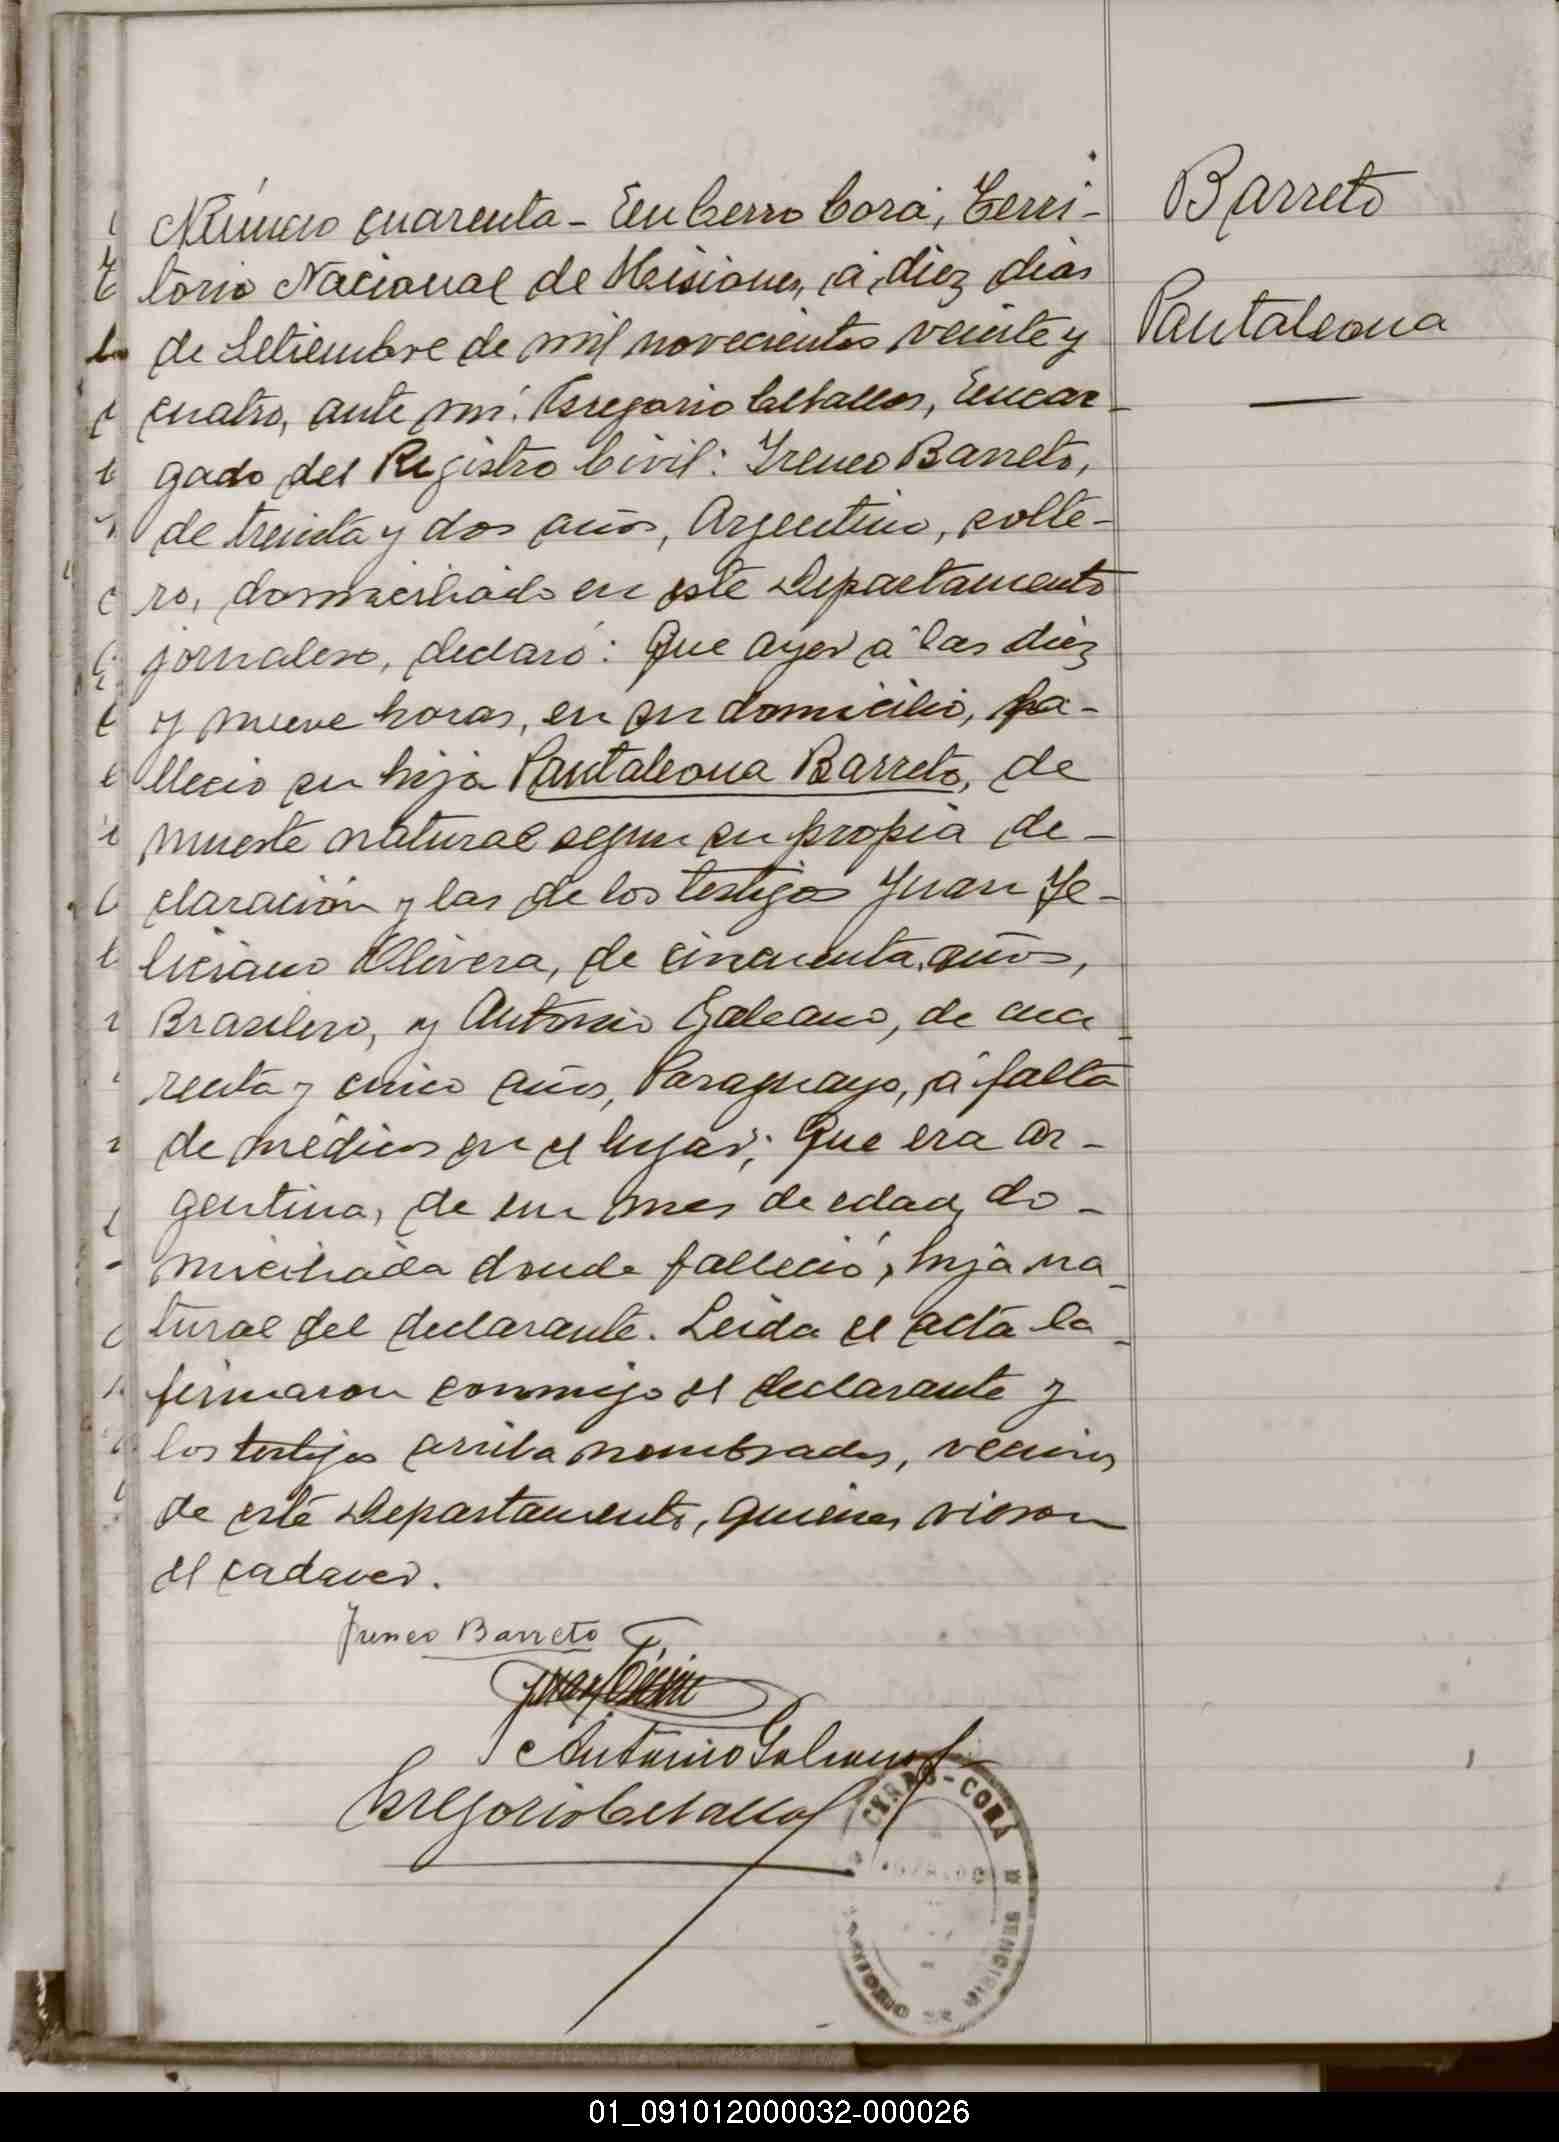 Barreto
Pantaleona
Número cuarenta - En Cerro Corá, Terri-
torio Nacional de Misiones, á diez dias
de Setiembre de mil novecientos veinte y
cuatro, ante mi: Gregorio Ceballos, Encar-
gado del Registro Civil: Ireneo Barreto,
de treinta y dos años, Argentino, solte-
ro, domiciliado en este Departamento
jornalero, declaró: Que ayer á las diez
y nueve horas, en su domicilio, fa-
llecio su hija Pantaleona Barreto, de
muerte natural segun su propia de-
claración y las de los testigos Juan Fe-
liciano Olivera, de cincuenta años,
Brasilero, y Antonio Galeano, de cua-
renta y cinco años, Paraguayo, á falta
de médicos en el lugar; Que era ar-
gentina, de un mes de edad, do-
miciliada donde falleció, hija na-
tural del declarante. Leida el acta la
firmaron conmigo el declarante y
los testigos arriba nombrados, vecinos
de este Departamento, quienes vieron
el cadaver.
Ireneo Barreto
Antonio Galeano
Gregorio Ceballos
CERRO-CORÁ
01_091012000032-000026